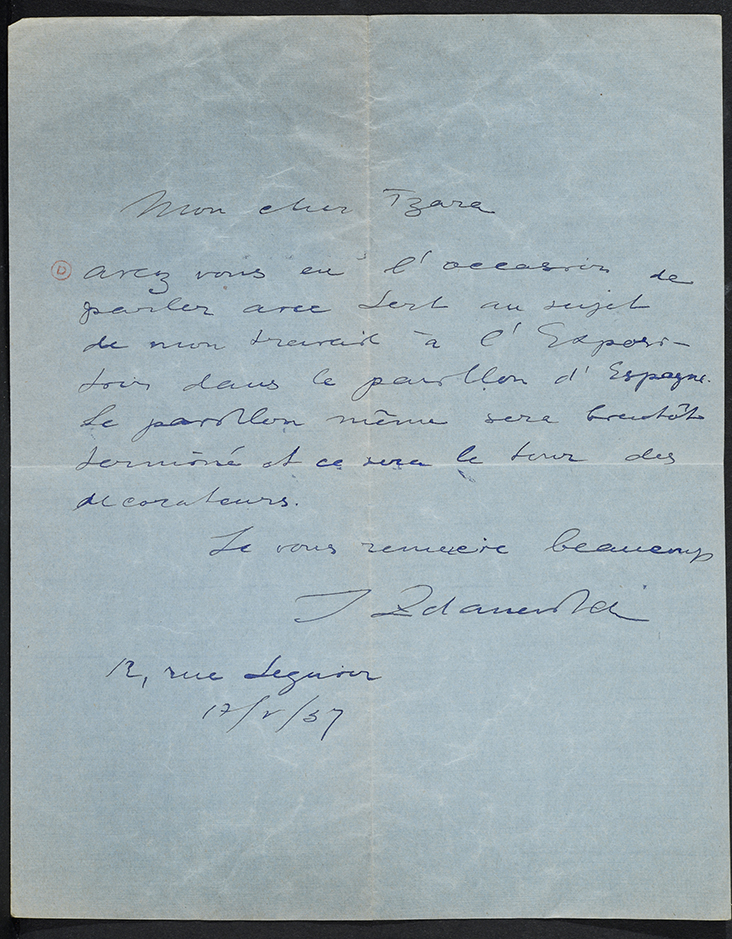 Mon cher Tzara
D avez vous eu l'occasion de
parler avec Sert au sujet
de mon travail à l'Exposi-
tion dans le pavillon d'Espagne.
Le pavillon même sera bientôt
terminé et ce sera le tour des
décorateurs.
Je vous remercie beaucoup
I Zdanevitch
12, rue Seguier
17/V/37